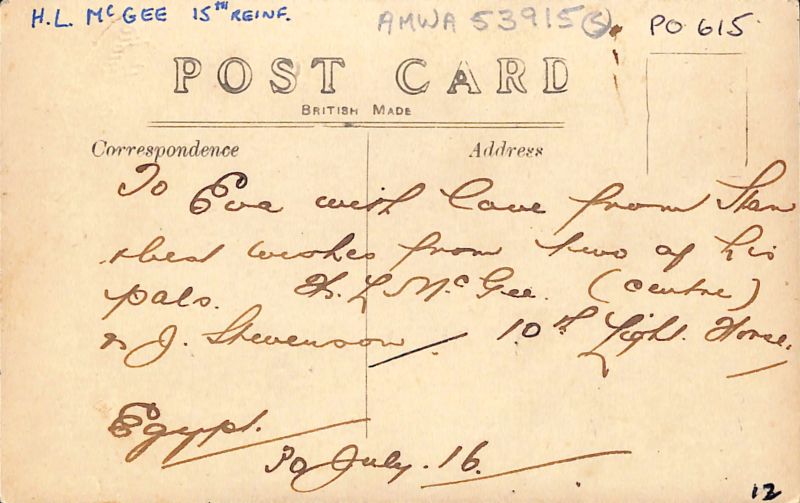 H.L. McGEE 15TH REINF.
AMWA 53915(5)
PO 615
POST CARD
BRITISH MADE
Correspondence
Address
To Eva with love from Stan
& best wishes from two of his
pals. H. L McGee. (centre)
& J. Stevenson 10th Light. Horse.
Egypt.
30 July. 16.
12